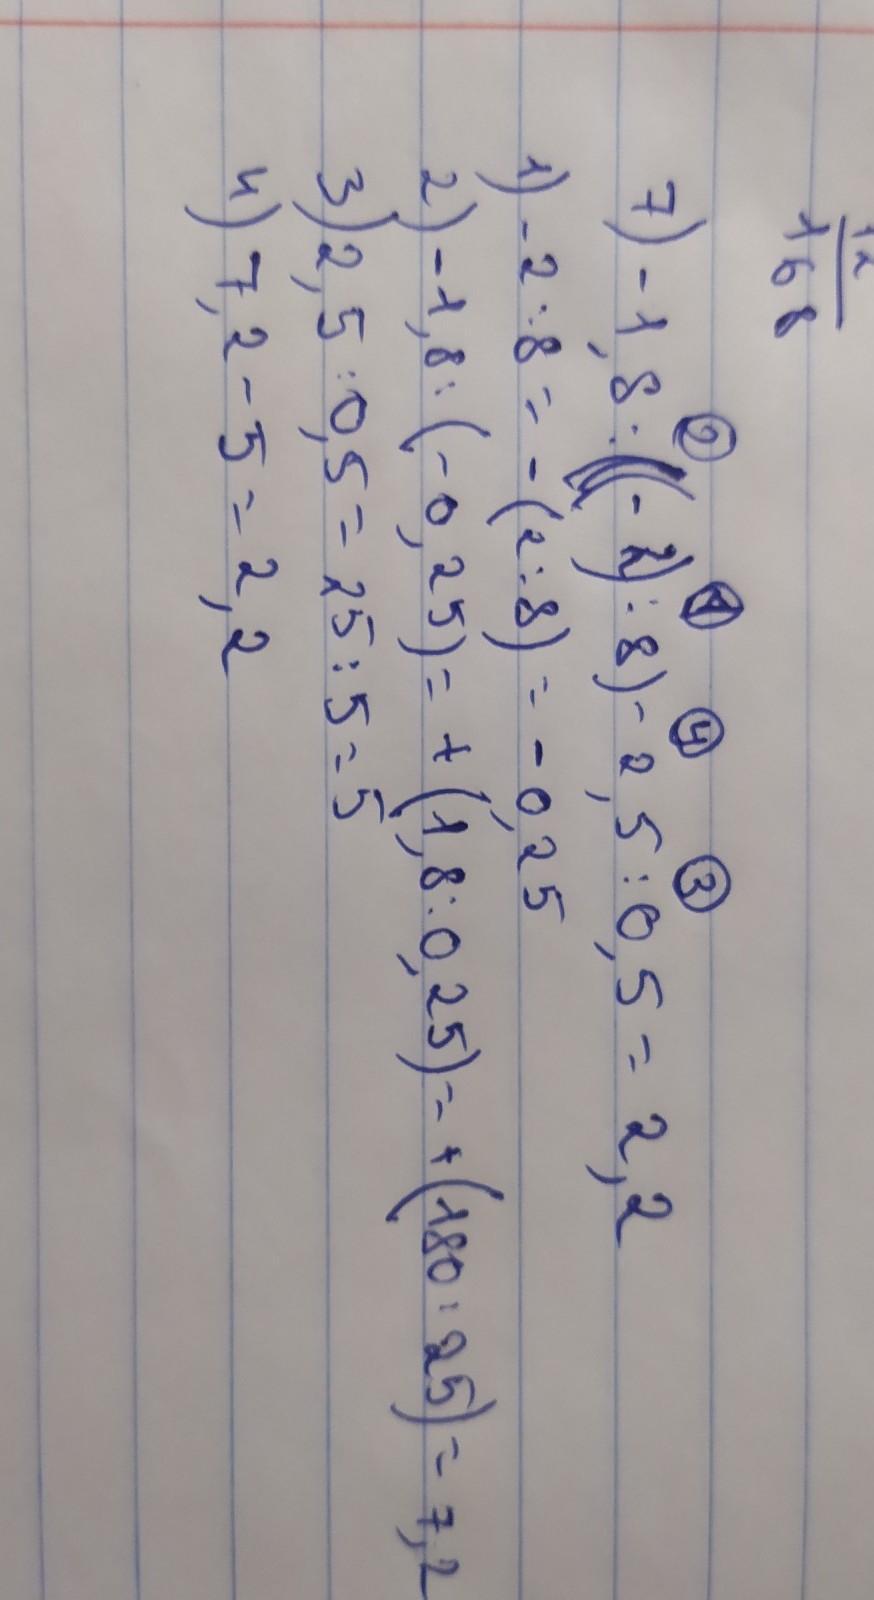 168
② ① ④ ③
7) -1,8:((-2):8)-2,5:0,5= 2,2
1) -2:8= -(2:8)= -0,25
2) -1,8:(-0,25)= +(1,8:0,25)= +(180:25)= 7,2
3) 2,5:0,5= 25:5=5
4) 7,2-5= 2,2